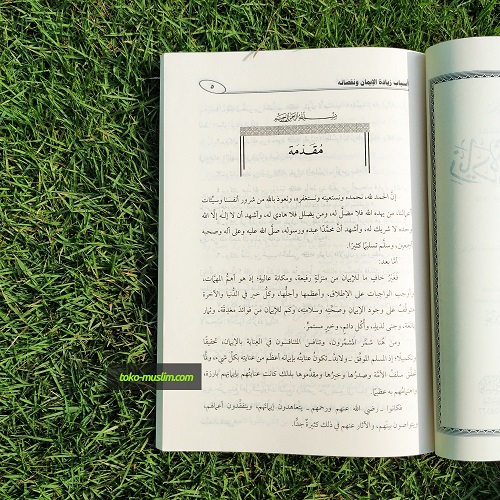 أسباب زيادة الإيمان ونقصانه
٥
مُقَدِّمَة
إنَّ الحمد لله، نحمده ونستعينه ونستغفره، ونعوذ بالله من شرور أنفسنا وسيِّئات
أعمالنا، من يهده الله فلا مضلَّ له، ومن يضلل فلا هادي له، وأشهد أن لا إله إلَّا الله
وحده لا شريك له، وأشهد أنَّ محمَّدًا عبده ورسوله، صلَّى الله عليه وعلى آله وصحبه
أجمعين، وسلَّم تسليمًا كثيرًا.
أمَّا بعد:
فغيرُ خافٍ ما للإيمان من منزلةٍ رفيعة، ومكانة عالية؛ إذ هو أهمُّ المهمَّات،
وأوجب الواجبات على الإطلاق، وأعظمها وأجلُّها، وكلُّ خير في الدُّنيا والآخرة
متوقِّفٌ على وجود الإيمان وصحَّتِه وسلامتِه، وكم للإيمان من فوائدَ مغدقة، وثمار
يانعة، وجنى لذيذ، وأُكُل دائم، وخير مستمرّ.
ومن هُنا شمَّر المشمِّرون، وتنافس المتنافسون في العناية بالإيمان، تحقيقًا
وتكميلًا؛ إذ المسلم الموفَّق ـ ولابدَّ ـ تكونُ عنايتُه بإيمانه أعظم من عنايته بكلِّ شيء، ولمَّا
تحقَّق سلفُ الأمَّة وصدرُها وخيرُها ومقدَّموها بذلك كانت عنايتُهم بإيمانهم بارزة،
واهتمامُهم به عظيمًا.
فكانوا ـ رضي الله عنهم ورحمهم ـ يتعاهدون إيمانَهم، ويتفقَّدون أعمالَهم،
ويتواصون بينهم، والآثار عنهم في ذلك كثيرةٌ جدًّا.
toko-muslim.com